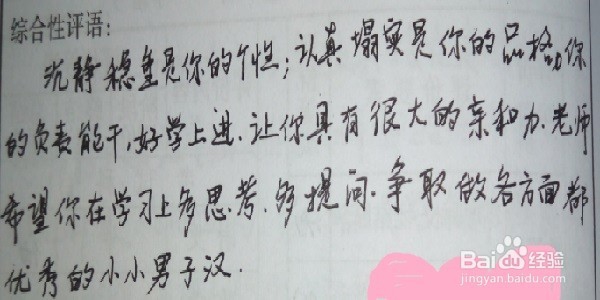 综合性评语:
沉静稳重是你的个性;认真塌实是你的品格,你
的负责能干,好学上进.让你具有很大的亲和力.老师
希望你在学习上多思考.多提问.争取做各方面都
优秀的小小男子汉.
Baidu经验
jingyan.baidu.com